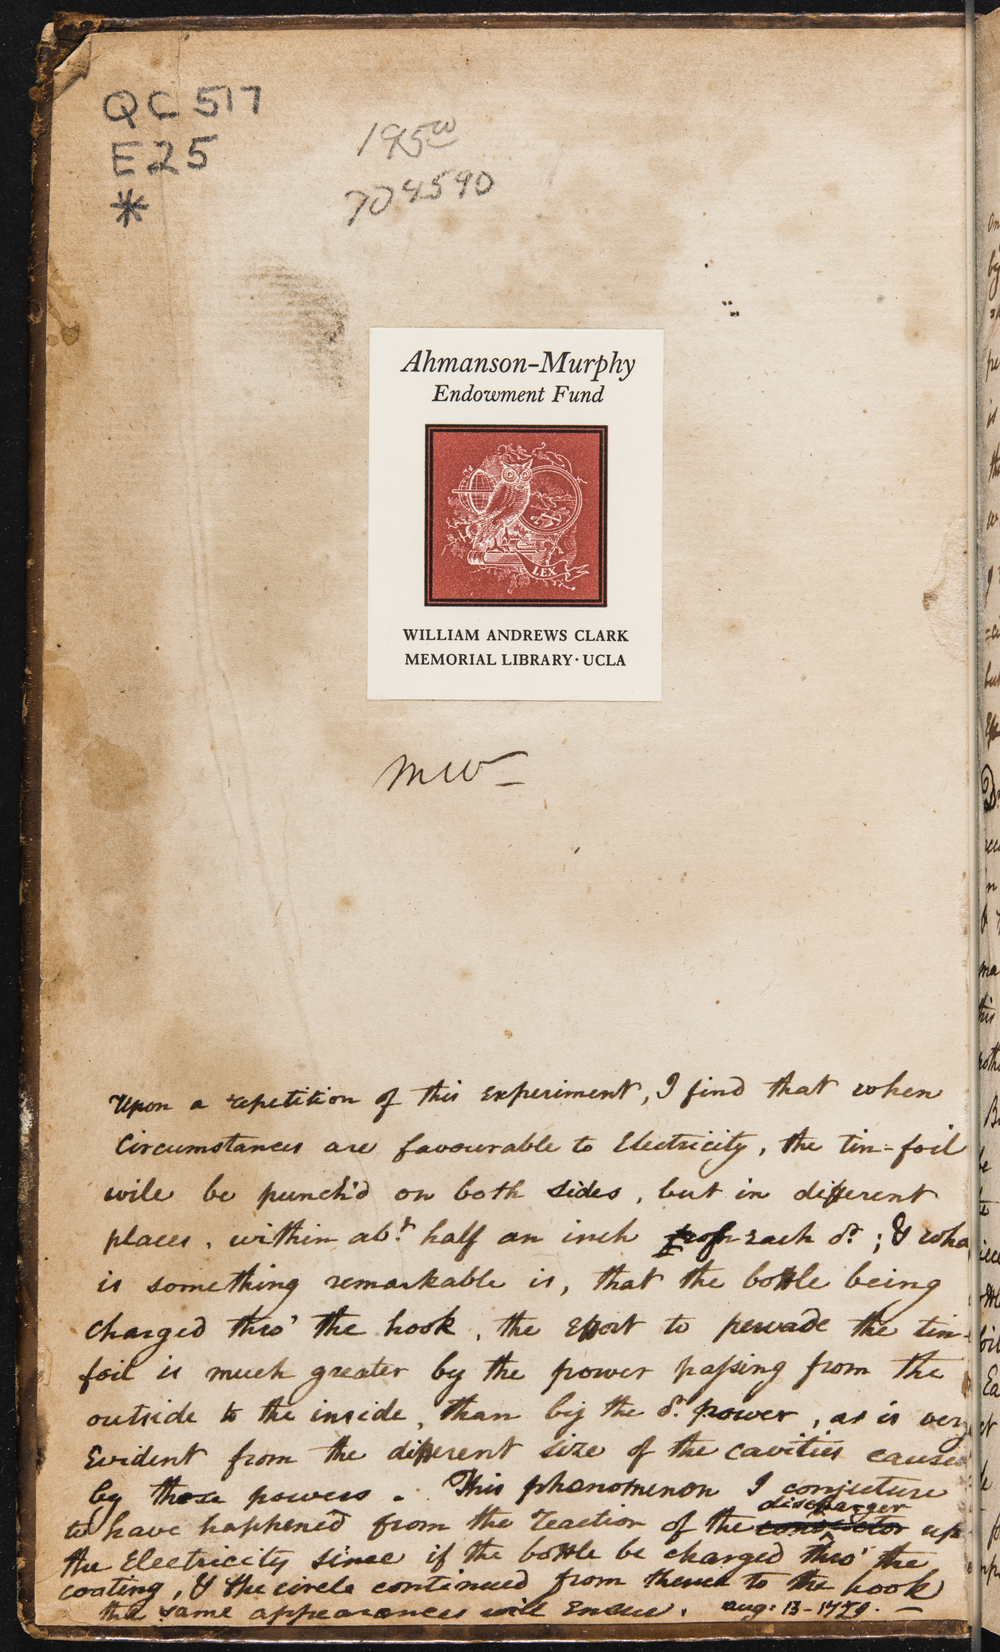 QC 517
E25
*
195 00
704590
Ahmanson-Murphy
Endowment Fund
LEX
WILLIAM ANDREWS CLARK
MEMORIAL LIBRARY · UCLA
MW
Upon a repetition of this Experiment, I find that when
Circumstances are favourable to Electricity, the tin-foil
will be punch'd on both sides, but in different
places, within abt. half an inch from each or. ; & wha
is something remarkable is, that the bottle being
charged thro' the hook, the Effort to pervade the tin-
foil is much greater by the power paſsing from the
outside to the inside, than by the or. power, as is very
Evident from the different size of the cavities cause
by those powers. This phænomenon I conjecture
discharger
to have happened from the reaction of the conductor up
the Electricity since if the bottle be charged thro' the
coating, & the circle continued from thence to the hook
the same appearances will Ensue. Aug: 13 - 1779. —